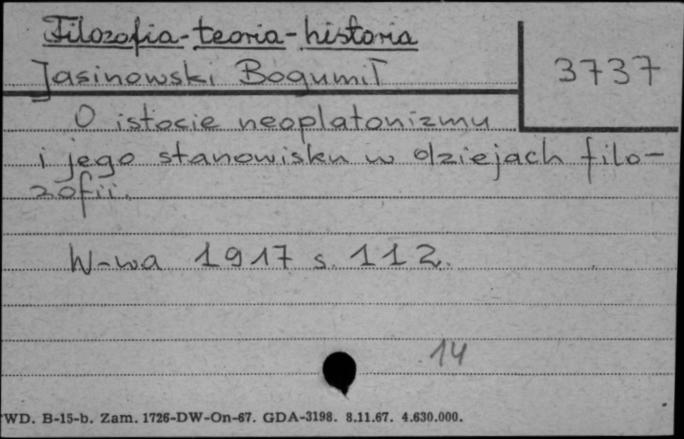 Filozofia-teoria-historia
Jasinowski Bogumił
3737
O istocie neoplatonizmu
i jego stanowisku w dziejach filo-
zofii.
W-wa 1917 s. 112.
14
WD. B-15-b. Zam. 1726-DW-On-67. GDA-3198. 8.11.67. 4.630.000.